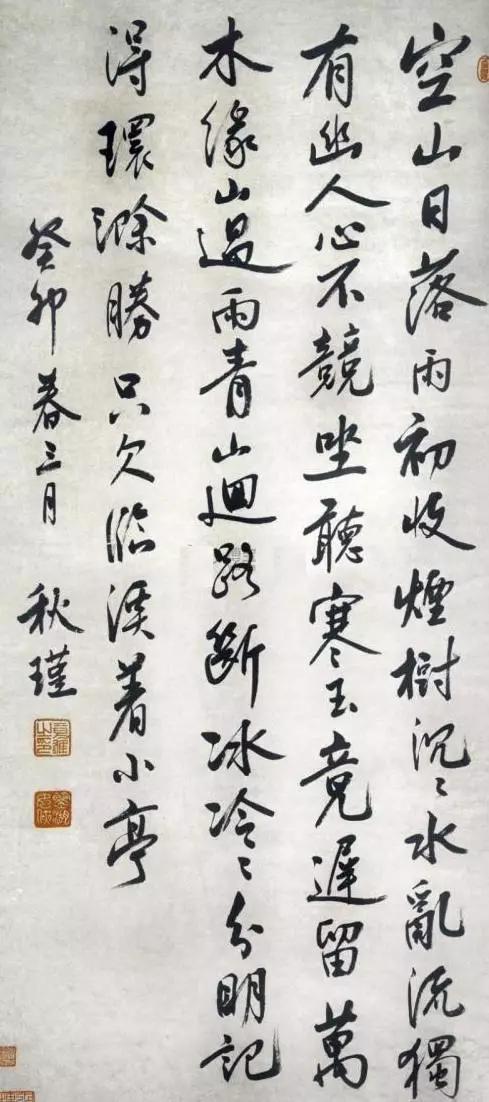 空山日落雨初收煙樹沉〻水亂流獨
有幽人心不競坐聽寒玉竟遲留萬
木緣山過雨青山迴路斷冰冷〻分明記
得環滁勝只欠臨溪着小亭
癸卯春三月 秋瑾